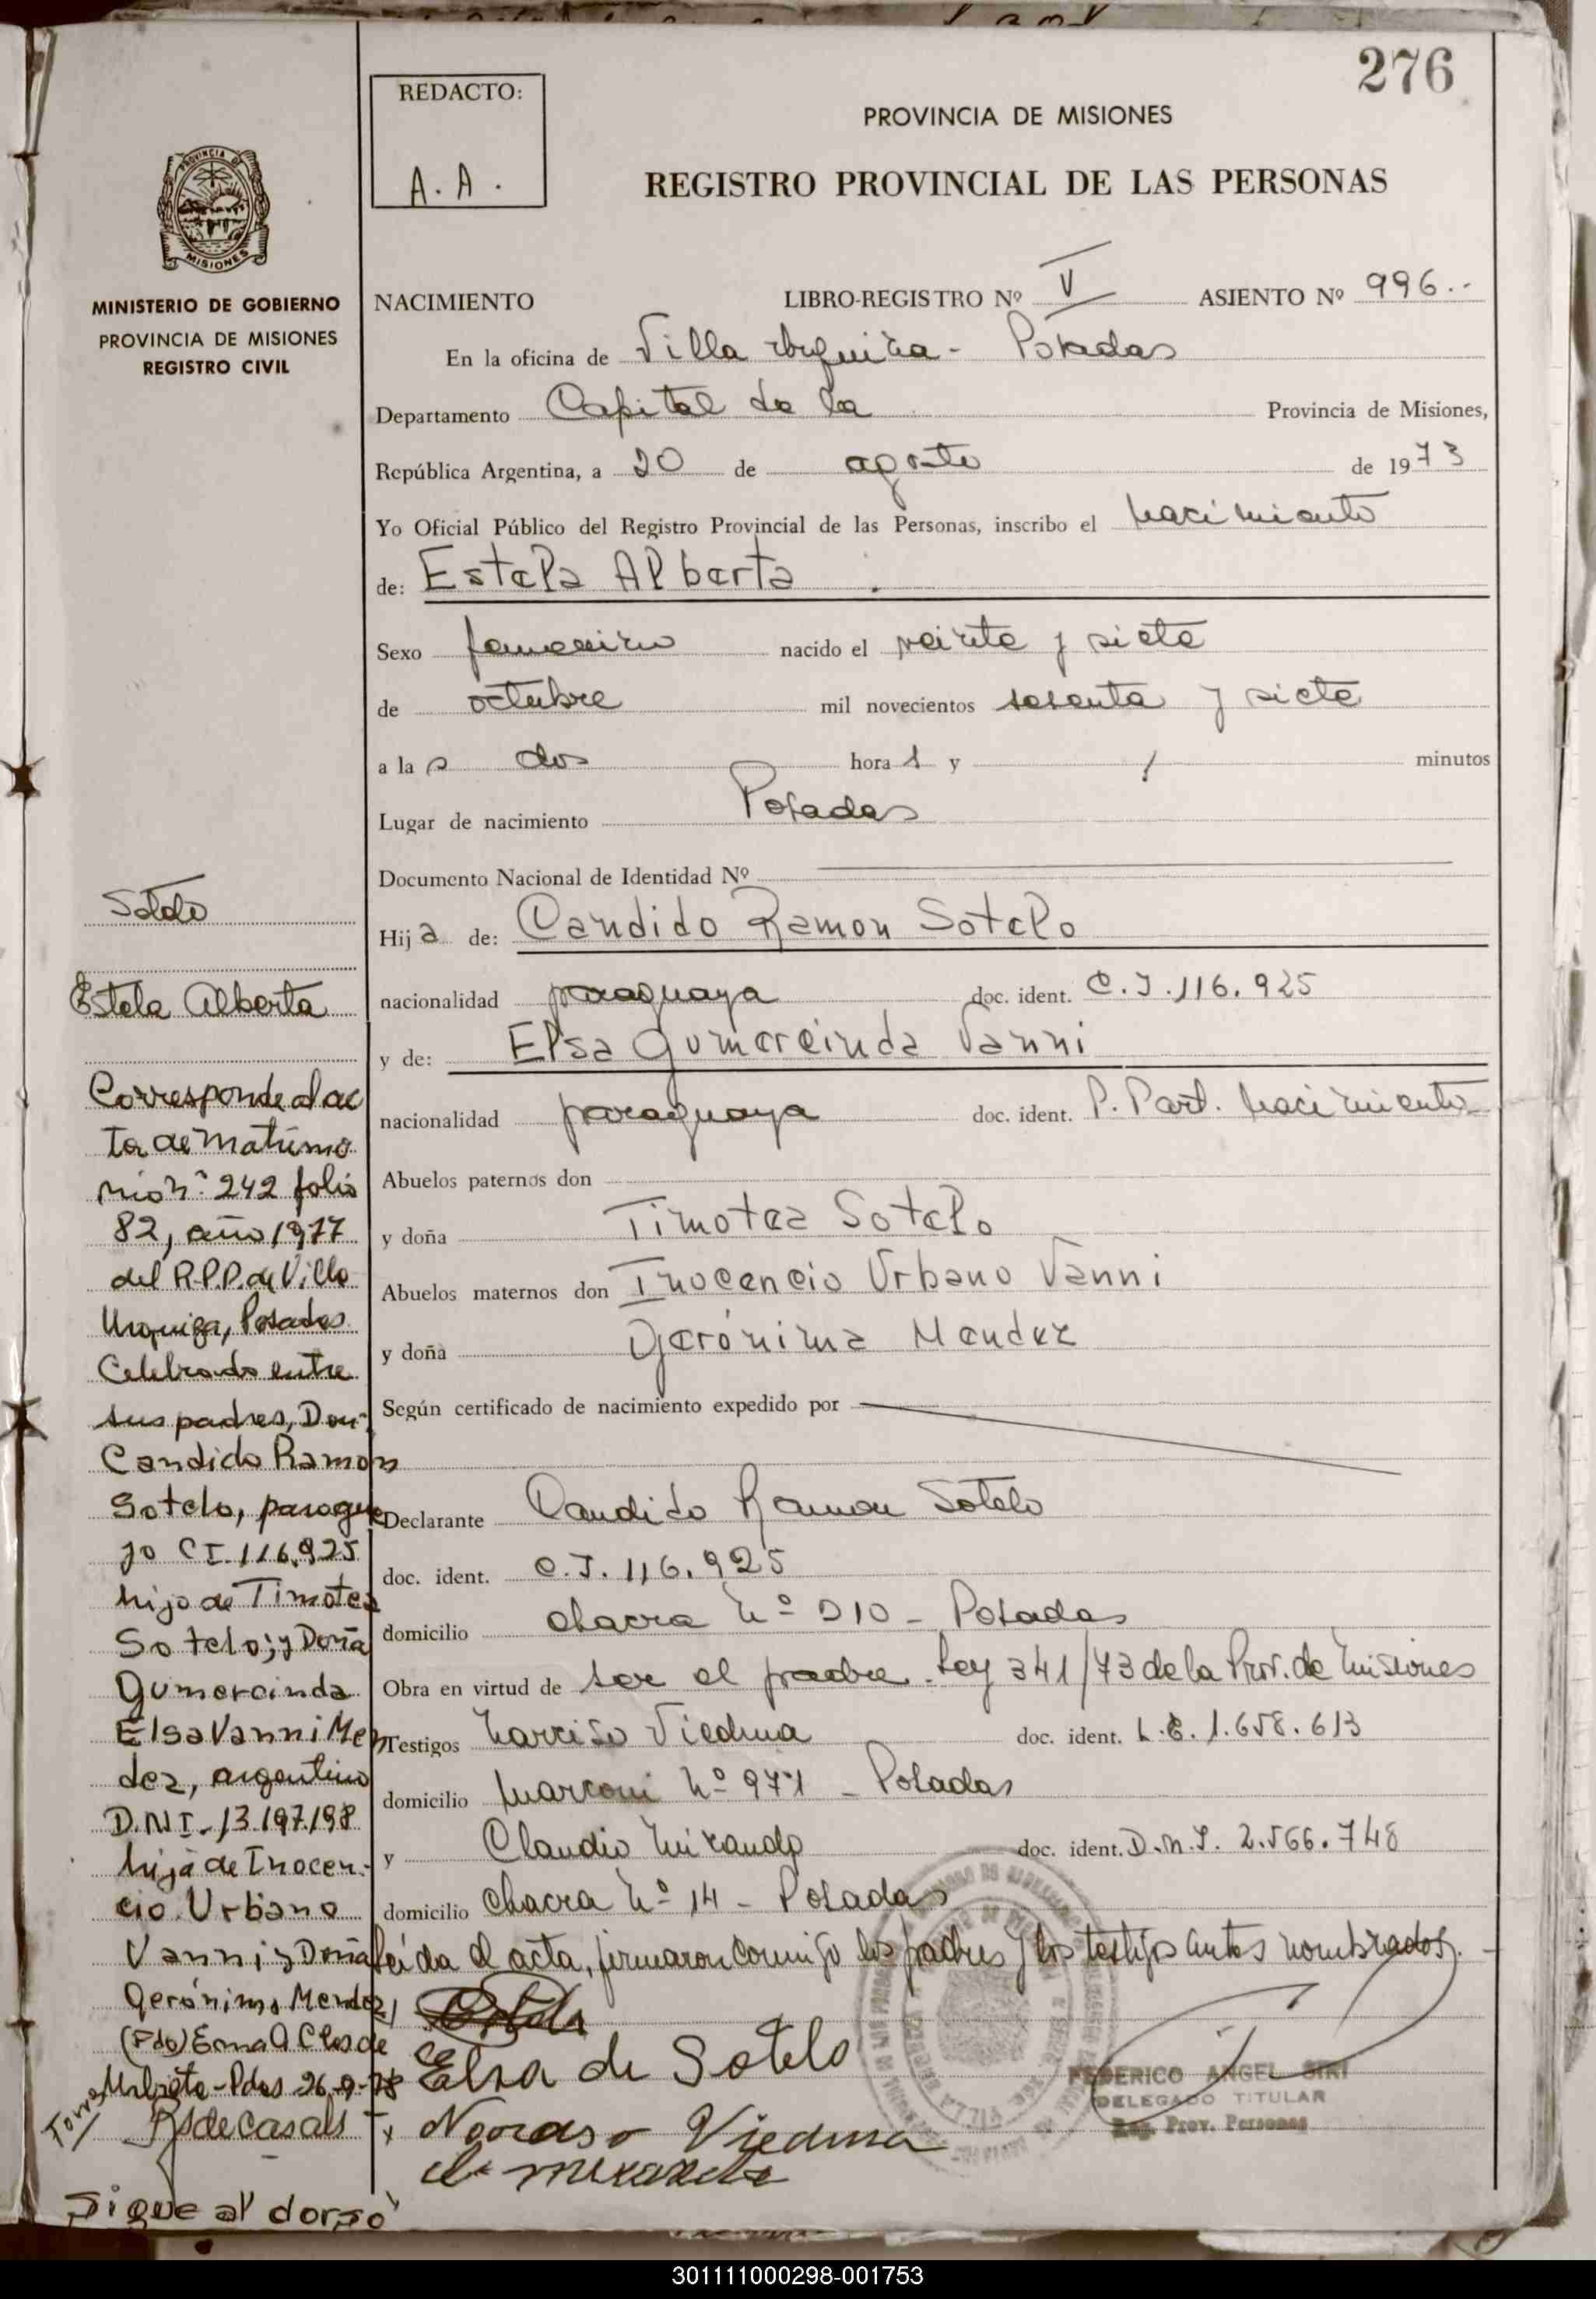 276
REDACTO:
A. A.
PROVINCIA DE MISIONES
REGISTRO PROVINCIAL DE LAS PERSONAS
PROVINCIA DE
MISIONES
MINISTERIO DE GOBIERNO
PROVINCIA DE MISIONES
REGISTRO CIVIL
NACIMIENTO LIBRO-REGISTRO Nº V ASIENTO Nº 996..
En la oficina de Villa Urquiza - Posadas
Departamento Capital de la Provincia de Misiones,
República Argentina, a 20 de agosto de 1973
Yo Oficial Público del Registro Provincial de las Personas, inscribo el nacimiento
de: Estela Alberta
Sexo femenino nacido el veinte y siete
de octubre mil novecientos sesenta y siete
a las dos horas y / minutos
Lugar de nacimiento Posadas
Documento Nacional de Identidad Nº
Hija de: Candido Ramon Sotelo
nacionalidad paraguaya doc. ident. C.I. 116.925
y de: Elsa Gumercinda Vanni
nacionalidad paraguaya doc. ident. P. Part. nacimiento
Abuelos paternos don
y doña Timotea Sotelo
Abuelos maternos don Inocencio Urbano Vanni
y doña Gerónima Mendez
Según certificado de nacimiento expedido por
Declarante Candido Ramon Sotelo
doc. ident. C.I. 116.925
domicilio chacra Nº 210 - Posadas
Obra en virtud de ser el padre. Ley 341/73 de la Prov. de Misiones
Testigos Narciso Viedma doc. ident. L.E. 1.658.613
domicilio Marconi Nº 971 - Posadas
y Claudio Miranda doc. ident. D.N.I. 2.566.748
domicilio chacra Nº 14 - Posadas
Leída el acta, firmaron conmigo los padres y los testigos antes nombrados.
Elsa de Sotelo
Viedma
FEDERICO ANGEL SIRI
DELEGADO TITULAR
Reg. Prov. Personas
Sotelo
Estela Alberta
Corresponde al ac
ta de Matrimo
nio n° 242 folio
82, año 1977
del R.P.P. de Villa
Urquiza, Posadas
Celebrado entre
sus padres, Don
Candido Ramon
Sotelo, paragua
yo CI. 116.925
hijo de Timotea
Sotelo; y Doña
Gumercinda
Elsa Vanni Men
dez, argentina
D.N.I. 13.197.198
hija de Inocen-
cio Urbano
Vanni y Doña
Gerónima Mendez
(Fdo) Erma A C de
Pdas 26-9-78
de Casals
Sigue al dorso
301111000298-001753